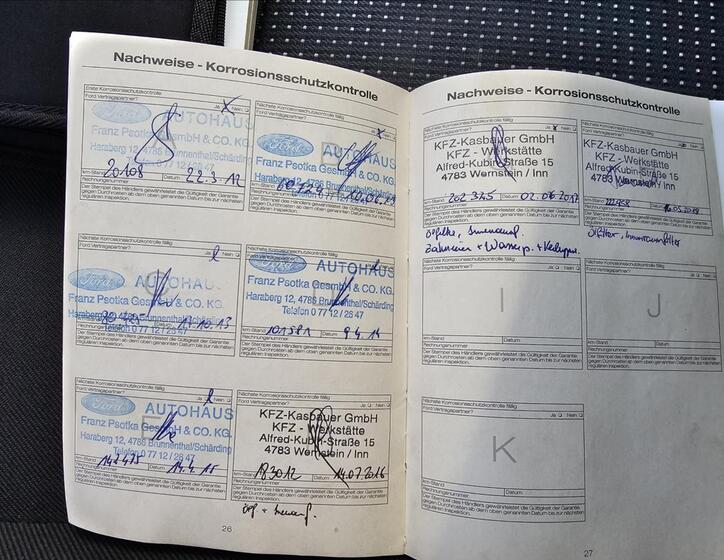 Nachweise - Korrosionsschutzkontrolle
Erste Korrosionsschutzkontrolle
Ford Vertragspartner? Ja Nein
Ford AUTOHAUS
Franz Psotka GesmbH & CO. KG.
Haraberg 12, 4786 Brunnenthal/Schärding
Telefon 0 77 12 / 26 47
km-Stand 20108 Datum 22.3.12
Rechnungsnummer
Der Stempel des Händlers gewährleistet die Gültigkeit der Garantie
gegen Durchrosten ab dem oben genannten Datum bis zur nächsten
regulären Inspektion.
Nächste Korrosionsschutzkontrolle fällig
Ford Vertragspartner? Ja Nein
Ford AUTOHAUS
Franz Psotka GesmbH & CO. KG.
Haraberg 12, 4786 Brunnenthal/Schärding
Telefon 0 77 12 / 26 47
km-Stand Datum
Rechnungsnummer
Der Stempel des Händlers gewährleistet die Gültigkeit der Garantie
gegen Durchrosten ab dem oben genannten Datum bis zur nächsten
regulären Inspektion.
Nächste Korrosionsschutzkontrolle fällig
Ford Vertragspartner? Ja Nein
Ford AUTOHAUS
Franz Psotka GesmbH & CO. KG.
Haraberg 12, 4786 Brunnenthal/Schärding
Telefon 0 77 12 / 26 47
km-Stand Datum 10.13
Rechnungsnummer
Der Stempel des Händlers gewährleistet die Gültigkeit der Garantie
gegen Durchrosten ab dem oben genannten Datum bis zur nächsten
regulären Inspektion.
Nächste Korrosionsschutzkontrolle fällig
Ford Vertragspartner? Ja Nein
Ford AUTOHAUS
Franz Psotka GesmbH & CO. KG.
Haraberg 12, 4786 Brunnenthal/Schärding
Telefon 0 77 12 / 26 47
km-Stand 101581 Datum 9.4.14
Rechnungsnummer
Der Stempel des Händlers gewährleistet die Gültigkeit der Garantie
gegen Durchrosten ab dem oben genannten Datum bis zur nächsten
regulären Inspektion.
Nächste Korrosionsschutzkontrolle fällig
Ford Vertragspartner? Ja Nein
Ford AUTOHAUS
Franz Psotka GesmbH & CO. KG.
Haraberg 12, 4786 Brunnenthal/Schärding
Telefon 0 77 12 / 26 47
km-Stand 142475 Datum 14.4.15
Rechnungsnummer
Der Stempel des Händlers gewährleistet die Gültigkeit der Garantie
gegen Durchrosten ab dem oben genannten Datum bis zur nächsten
regulären Inspektion.
Nächste Korrosionsschutzkontrolle fällig
Ford Vertragspartner? Ja Nein
KFZ-Kasbauer GmbH
KFZ - Werkstätte
Alfred-Kubin-Straße 15
4783 Wernstein / Inn
km-Stand 183012 Datum 14.07.2016
Rechnungsnummer
Der Stempel des Händlers gewährleistet die Gültigkeit der Garantie
gegen Durchrosten ab dem oben genannten Datum bis zur nächsten
regulären Inspektion.
26
Nachweise - Korrosionsschutzkontrolle
Nächste Korrosionsschutzkontrolle fällig
Ford Vertragspartner? Ja Nein
KFZ-Kasbauer GmbH
KFZ - Werkstätte
Alfred-Kubin-Straße 15
4783 Wernstein / Inn
km-Stand 202345 Datum 02.06.2017
Rechnungsnummer
Der Stempel des Händlers gewährleistet die Gültigkeit der Garantie
gegen Durchrosten ab dem oben genannten Datum bis zur nächsten
regulären Inspektion.
Zahnriem + Wasserp. +
Nächste Korrosionsschutzkontrolle fällig
Ford Vertragspartner? Ja Nein
KFZ-Kasbauer GmbH
KFZ - Werkstätte
Alfred-Kubin-Straße 15
4783 Wernstein / Inn
km-Stand Datum
Rechnungsnummer
Der Stempel des Händlers gewährleistet die Gültigkeit der Garantie
gegen Durchrosten ab dem oben genannten Datum bis zur nächsten
regulären Inspektion.
Nächste Korrosionsschutzkontrolle fällig
Ford Vertragspartner? Ja Nein
I
km-Stand Datum
Rechnungsnummer
Der Stempel des Händlers gewährleistet die Gültigkeit der Garantie
gegen Durchrosten ab dem oben genannten Datum bis zur nächsten
regulären Inspektion.
Nächste Korrosionsschutzkontrolle fällig
Ford Vertragspartner? Ja Nein
J
km-Stand Datum
Rechnungsnummer
Der Stempel des Händlers gewährleistet die Gültigkeit der Garantie
gegen Durchrosten ab dem oben genannten Datum bis zur nächsten
regulären Inspektion.
Nächste Korrosionsschutzkontrolle fällig
Ford Vertragspartner? Ja Nein
K
km-Stand Datum
Rechnungsnummer
Der Stempel des Händlers gewährleistet die Gültigkeit der Garantie
gegen Durchrosten ab dem oben genannten Datum bis zur nächsten
regulären Inspektion.
27